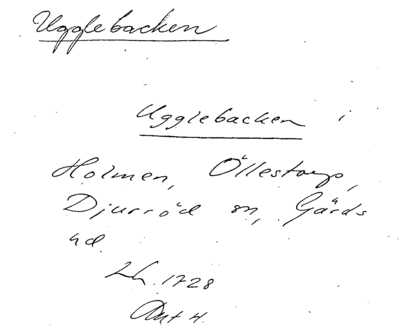 Ugglebacken
Ugglebacken i
Holmen, Öllestorp,
Djurröd sn, Gärds
hd
Lh. 1728
Akt 4.